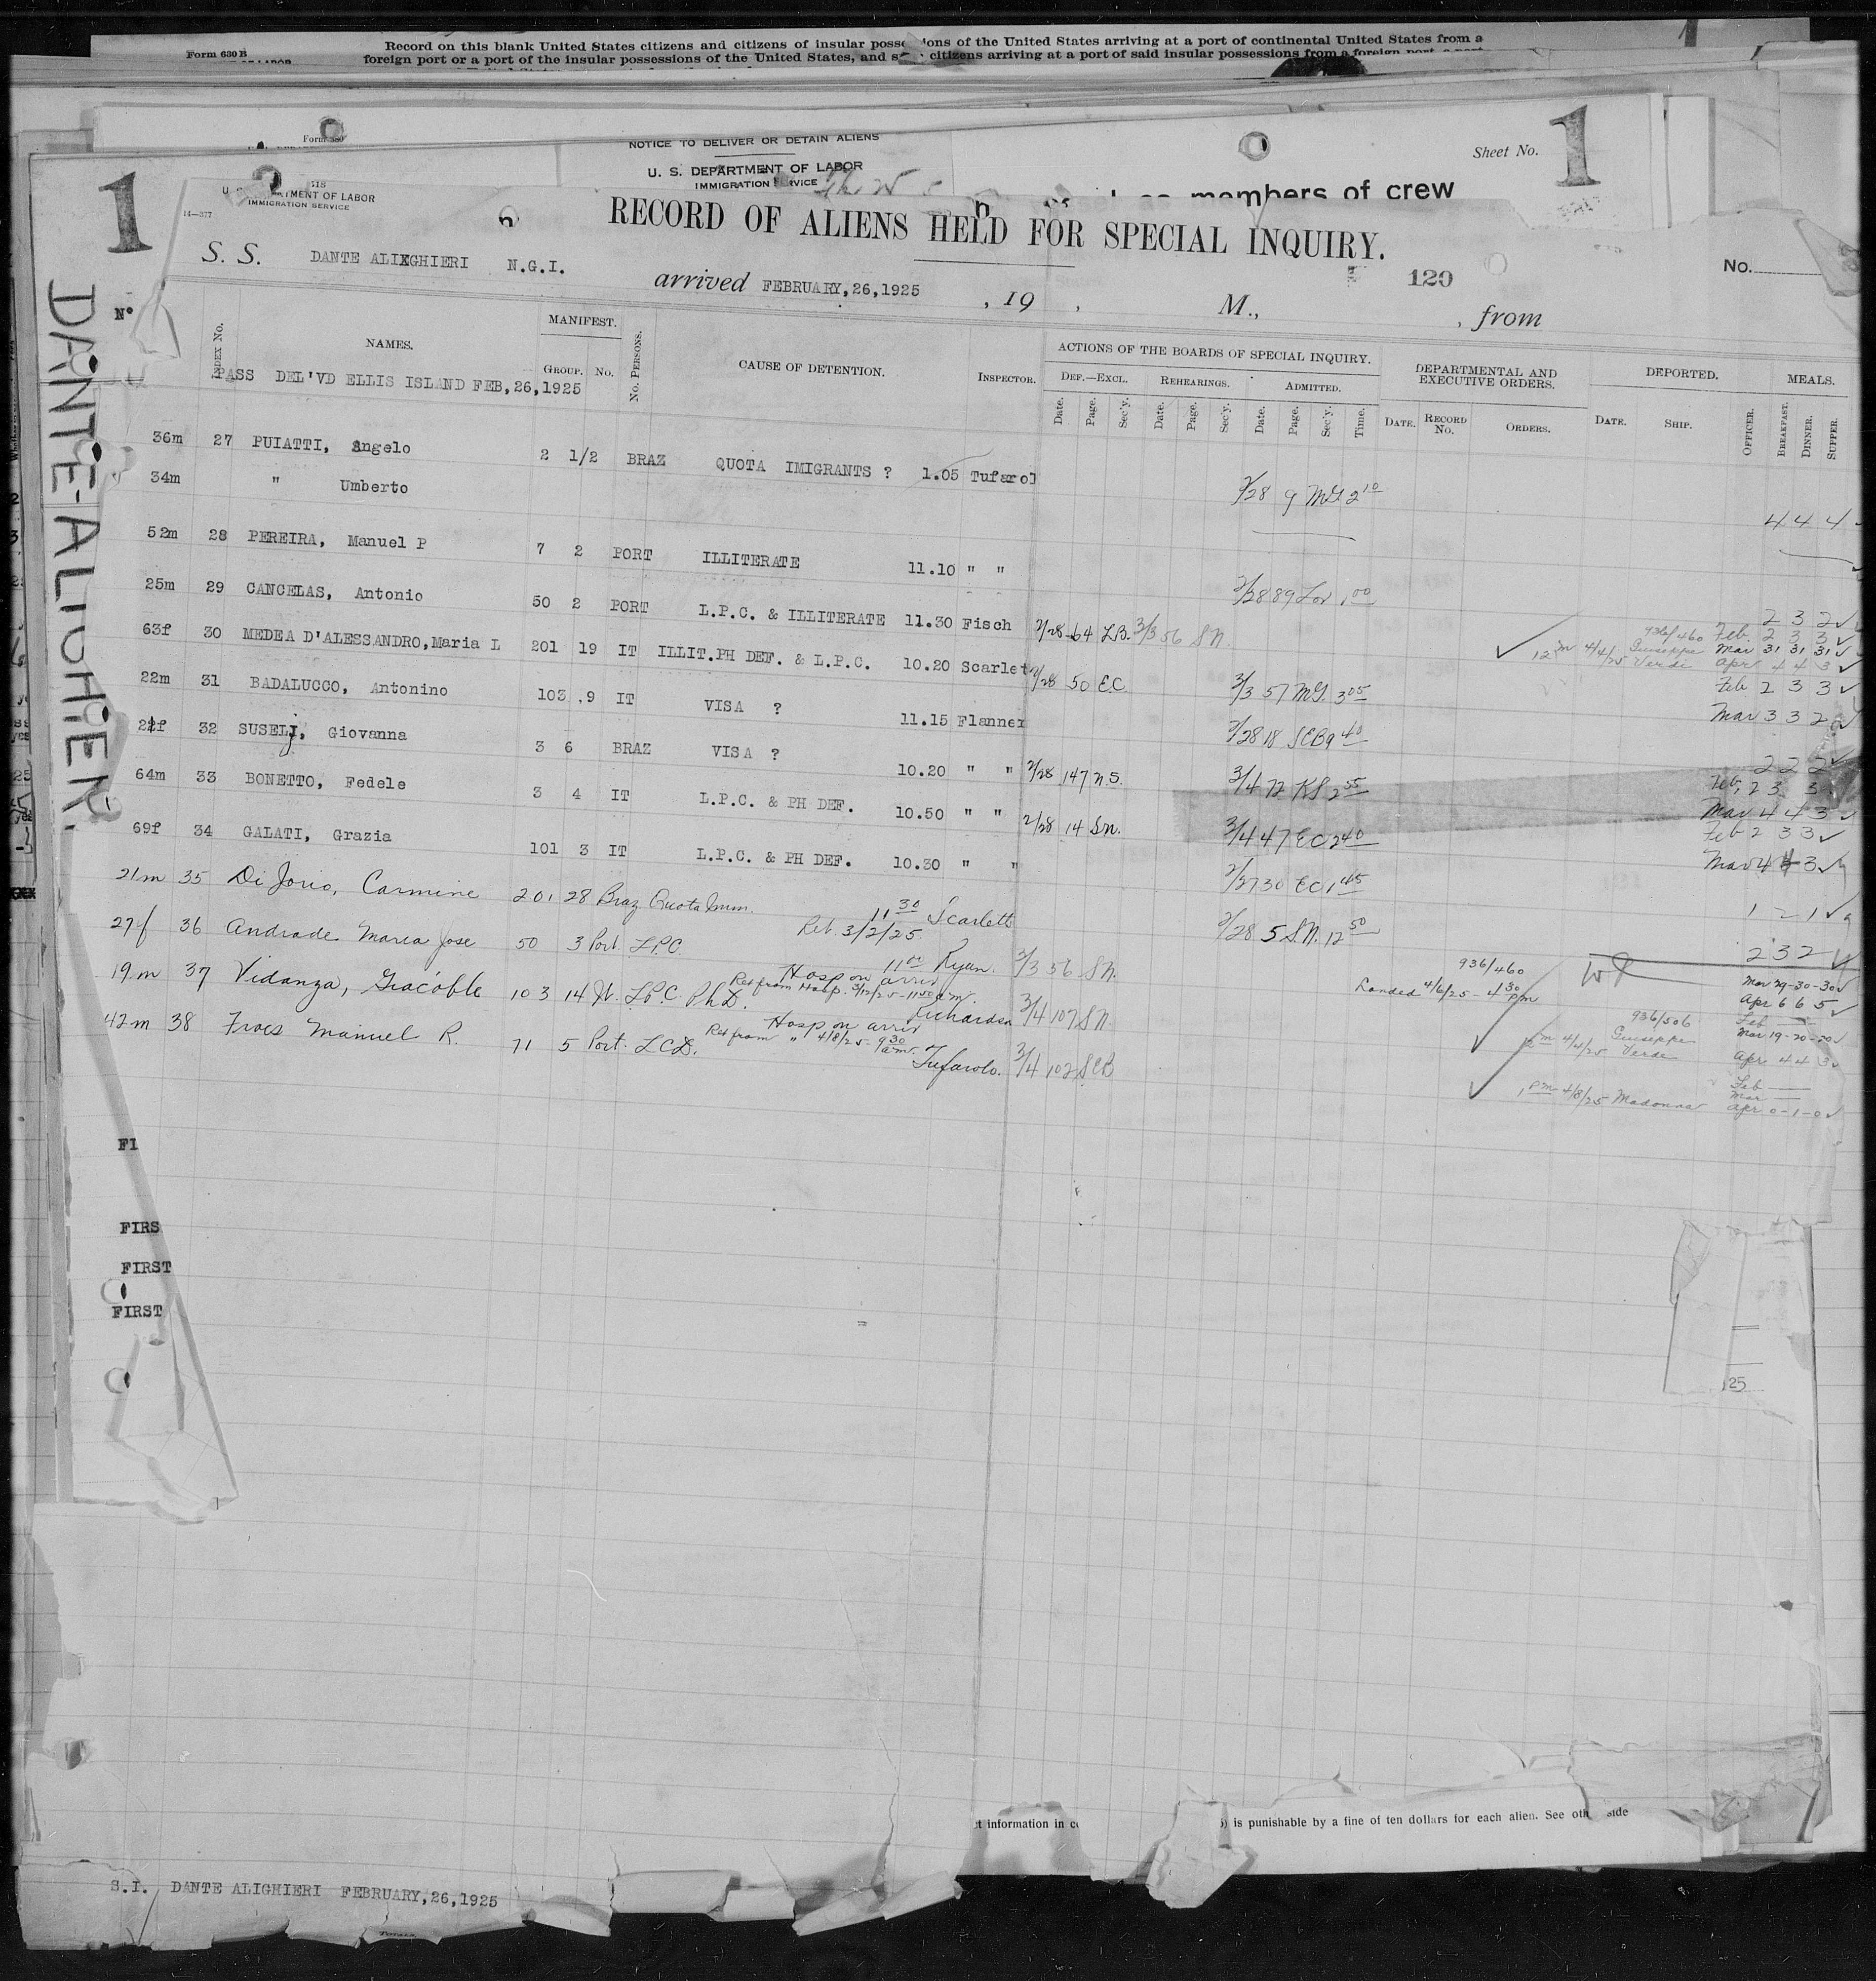 Form 630 B
Record on this blank United States citizens and citizens of insular possessions of the United States arriving at a port of continental United States from a
foreign port or a port of the insular possessions of the United States, and citizens arriving at a port of said insular possessions from a foreign port
1
NOTICE TO DELIVER OR DETAIN ALIENS
U. S. DEPARTMENT OF LABOR
IMMIGRATION SERVICE
Sheet No. 1
members of crew
1
DEPARTMENT OF LABOR
IMMIGRATION SERVICE
14—377
RECORD OF ALIENS HELD FOR SPECIAL INQUIRY.
S. S. DANTE ALIXGHIERI N.G.I. arrived FEBRUARY,26,1925 , 19 , M., , from
120
No.
DANTE-ALIGHIERI.
No
INDEX No. NAMES. MANIFEST. GROUP. No. No. PERSONS. CAUSE OF DETENTION. INSPECTOR.
ACTIONS OF THE BOARDS OF SPECIAL INQUIRY. DEF.—EXCL. REHEARINGS. ADMITTED.
Date. Page. Sec'y. Date. Page. Sec'y. Date. Page. Sec'y. Time.
DEPARTMENTAL AND EXECUTIVE ORDERS. DATE. RECORD No. ORDERS.
DEPORTED. DATE. SHIP. OFFICER.
MEALS. BREAKFAST. DINNER. SUPPER.
PASS DEL'VD ELLIS ISLAND FEB,26,1925
36m 27 PUIATTI, Angelo 2 1/2 BRAZ QUOTA IMIGRANTS ? 1.05 Tufarol 2/28 9 MG 2 10
34m " Umberto 4 4 4
52m 28 PEREIRA, Manuel P 7 2 PORT ILLITERATE 11.10 " " 2/28 89 1 00 2 3 2
25m 29 CANCELAS, Antonio 50 2 PORT L.P.C. & ILLITERATE 11.30 Fisch 2/28 64 LB. 3/3 56 SN. 12 m 4/4/25 936/460 Giuseppe Verdi Feb. 2 3 3 Mar 31 31 31 Apr 4 4 3
63f 30 MEDEA D'ALESSANDRO,Maria L 201 19 IT ILLIT.PH DEF. & L.P.C. 10.20 Scarlet 2/28 50 EC 3/3 57 MG. 3 05 Feb 2 3 3 Mar 3 3 2
22m 31 BADALUCCO, Antonino 103 .9 IT VISA ? 11.15 Flanner 2/28 18 SEB 9 40 2 2 2
22f 32 SUSELJ, Giovanna 3 6 BRAZ VISA ? 10.20 " " 2/28 147 NS. 3/4 72 KS 2 55 Feb, 2 3 3 Mar 4 4 3
64m 33 BONETTO, Fedele 3 4 IT L.P.C. & PH DEF. 10.50 " " 2/28 14 SN. 3/4 47 EC 2 40 Feb 2 3 3 Mar 4 4 3
69f 34 GALATI, Grazia 101 3 IT L.P.C. & PH DEF. 10.30 " " 2/27 30 EC 1 45 1 2 1
21m 35 Di Jorio, Carmine 201 28 Braz Quota Imm. 11 30 Scarlett 2/28 5 S.N. 12 50 2 3 2
27f 36 Andrade Maria Jose 50 3 Port. LPC Ret. 3/2/25. 11 00 Ryan. 3/3 56 SN. 936/460 Landed 4/6/25 - 4 30 pm Mar 29-30-30 Apr 6 6 5
19m 37 Vidanza, Giacoble 103 14 It. LPC PhD. Hosp on arriv Ret from Hosp. 3/12/25-11 50 am. Richardson 3/4 107 SN 12 m 4/4/25 936/506 Giuseppe Verdi Feb — Mar 19-20-20 Apr 4 4 3
42m 38 Froes Manuel R. 71 5 Port. LCD. Hosp on arriv Ret from " 4/8/25 - 9 30 am. Tufarolo. 3/4 102 SEB 1 pm 4/8/25 Madonna Feb — Mar — Apr 0-1-0
FI
FIRS
FIRST
FIRST
25
information in is punishable by a fine of ten dollars for each alien. See other side
S.I. DANTE ALIGHIERI FEBRUARY,26,1925